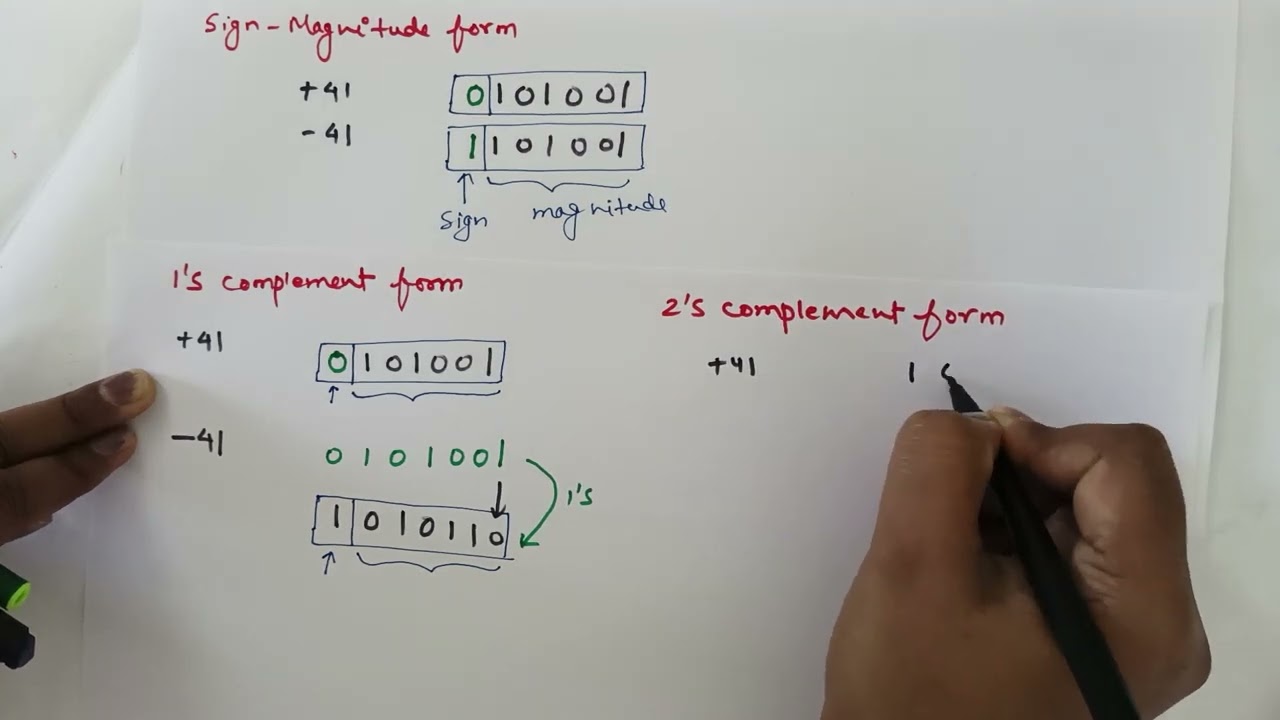 Sign-Magnitude form
+41 0 1 0 1 0 0 1
-41 1 1 0 1 0 0 1
Sign magnitude
1's complement form
+41 0 1 0 1 0 0 1
-41 0 1 0 1 0 0 1
1's
1 0 1 0 1 1 0
2's complement form
+41 1